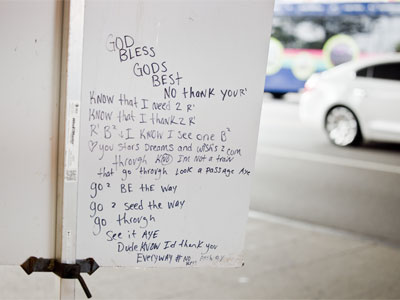 GOD
BLESS
GODS
BEST
NO thank YOUR'
KNOW that I NEED 2 R'
KNOW that I thank 2 R'
R' B² I KNOW I SEE ONE B²
♡ you stars Dreams and wishs 2 com
through KNO Im Not a train
that go through Look a passage AYE
go² BE the WAY
go² seed the WAY
go through
See it AYE
Dude KNOW Id thank you
Everyway #No